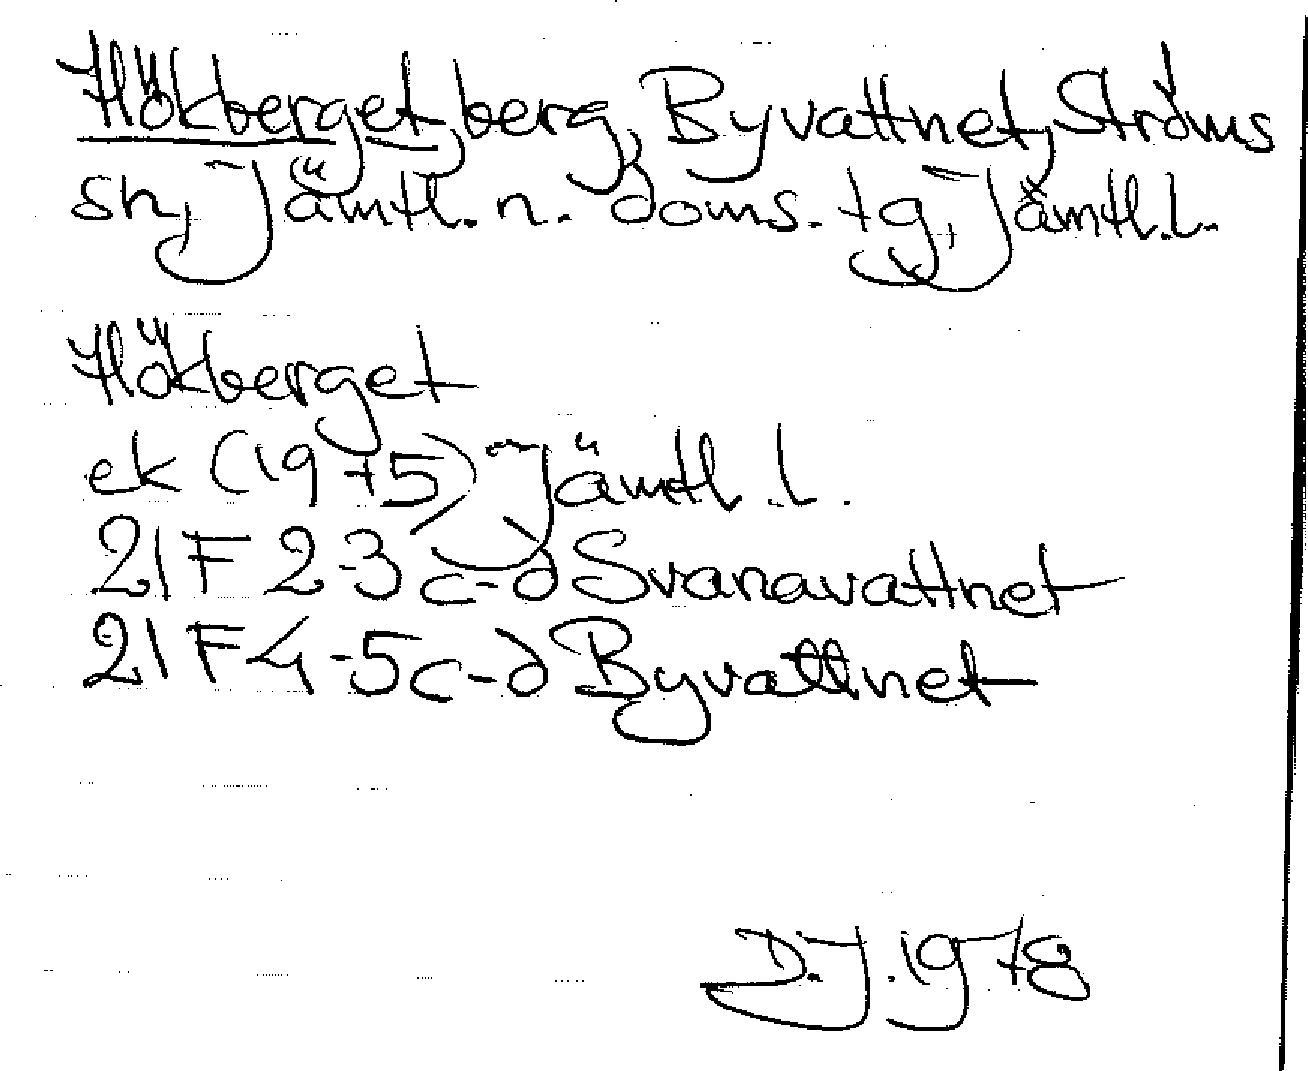 Hökberget, berg, Byvattnet, Ströms
sn, Jämtl. n. doms. tg, Jämtl. l.
Hökberget
ek (1975) Jämtl. l.
21 F 2-3 c-d Svanavattnet
21 F 4-5 c-d Byvattnet
D.J. 1978